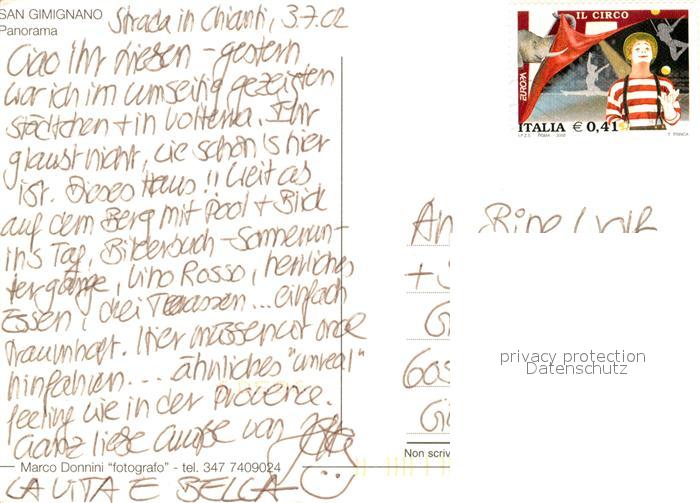 SAN GIMIGNANO
Panorama
Strada in Chianti, 3.7.02
Ciao Ihr Riesen - gestern
war ich im umseitig gezeigten
Städtchen + in Volterra. Ihr
glaubt nicht, wie schön's hier
ist. Dieses Haus!! Weit ab
auf dem Berg mit Pool + Blick
in's Tal, Bilderbuch-Sonnenun-
tergänge, Vino Rosso, herrliches
Essen, drei Terrassen... einfach
traumhaft. Hier müssen wir mal
hinfahren... ähnliches "unreal"
feeling wie in der Provence.
Ganz liebe Grüße von
Marco Donnini "fotografo" - tel. 347 7409024
LA VITA E BELLA
IL CIRCO
EUROPA
ITALIA € 0,41
I.P.Z.S. ROMA 2002
An
+
Non scriv
privacy protection
Datenschutz